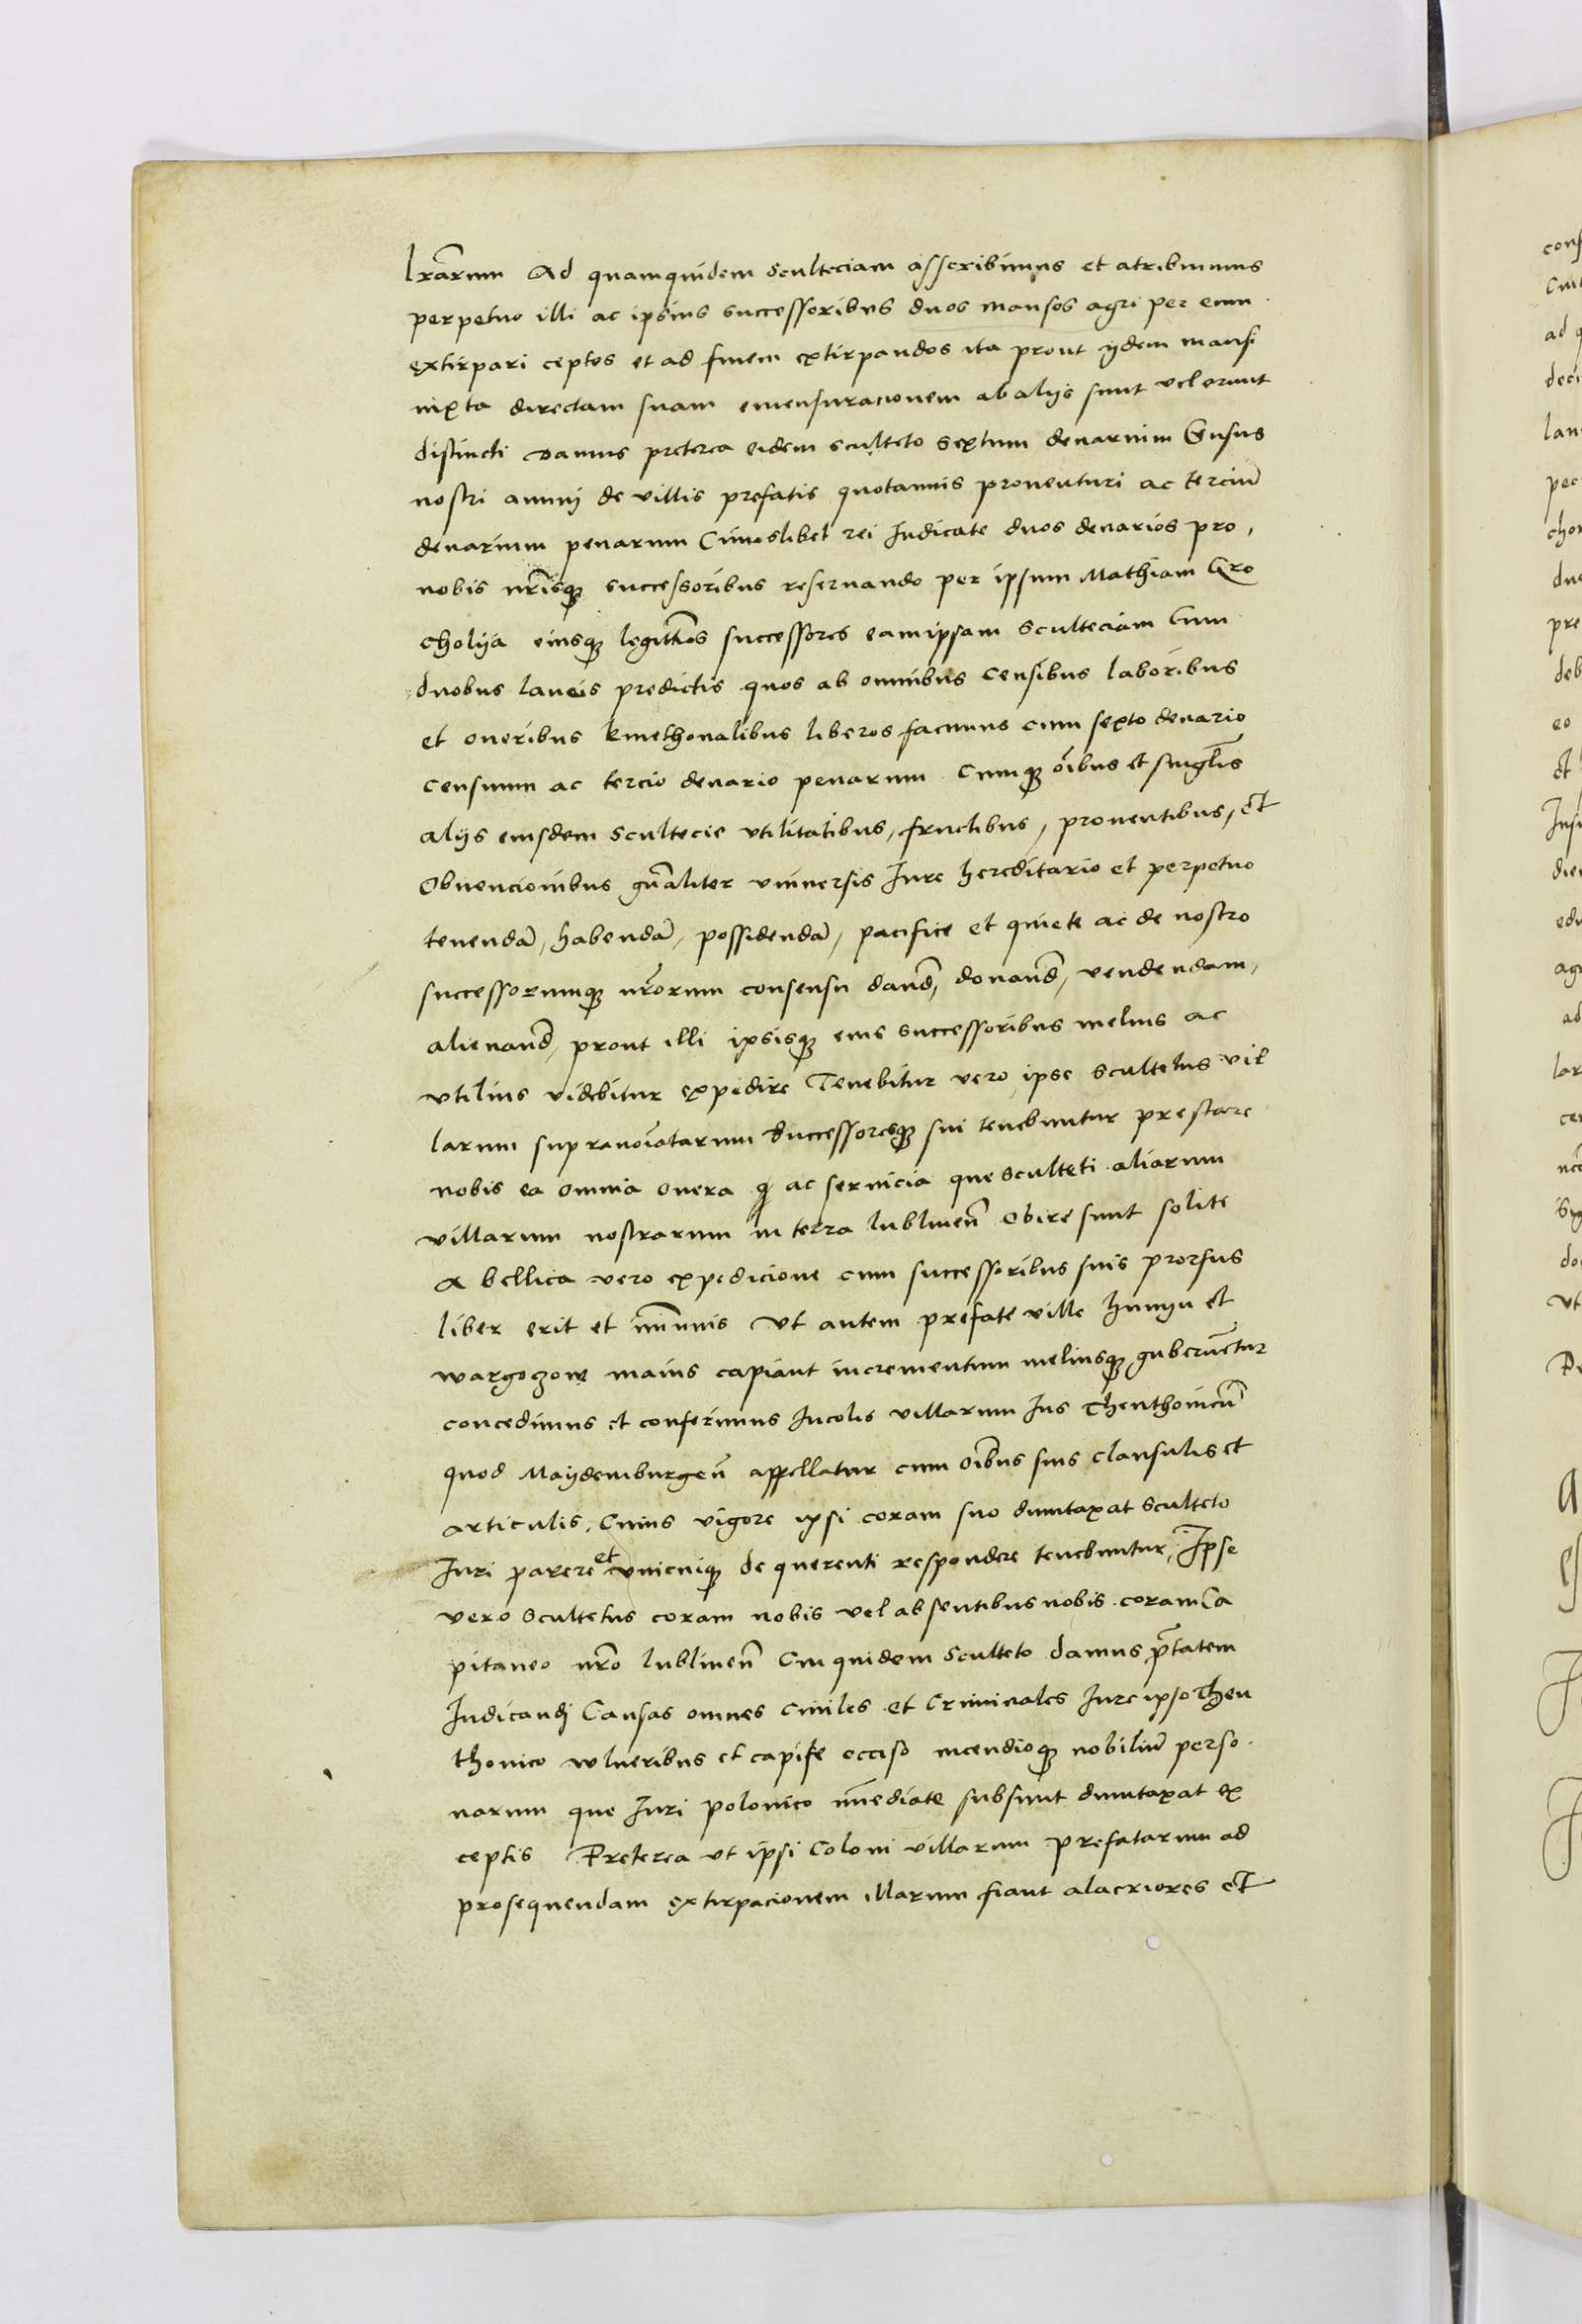 lrarum Ad quamquidem Sculteciam asscribimus et atribuimus
perpetuo illi ac ipsius successoribus duos mansos agri per eum
extirpari ceptos et ad finem extirpandos ita prout ijdem mansi
iuxta directam suam emensuracionem ab alijs sunt vel erunt
distincti Damus preterea eidem sculteto Sextum denarium Census
nostri annui de villis prefatis quotannis prouenturi ac terciu͂
denarium penarum Cuiuslibet rei Iudicate duos denarios pro,
nobis nr͂isq͗ successoribus reseruando per ipsum Mathiam Gro
cholija eiusq͗ legitt͂os successores eamipsam Sculteciam Cum
duobus laneis predictis quos ab omnibus Censibus laboribus
et oneribus kmethonalibus liberos facimus cum sexto denario
censuum ac tercio denario penarum Cumq͗ o͂ibus et singl͂is
alijs eiusdem Scultecie vtilitatibus, fructibus, prouentibus, et
Obuencionibus gn͂aliter vniuersis Iure hereditario et perpetuo
tenenda͂, habenda͂, possidenda͂, pacifice et quiete ac de nostro
successorumq͗ nr͂orum consensu dand͂, donand͂, vendendam,
alienand͂, prout illi ipsisq͗ eius successoribus melius ac
vtilius videbitur expedire Tenebitur vero ipse Scultetus vil
larum supranoi͂atarum Successoresq͗ sui tenebuntur prestare
nobis ea omnia onera q͗ ac seruicia que Sculteti aliarum
villarum nostrarum in terra lublinen͂ Obire sunt solite
A bellica vero expedicione cum successoribus suis prorsus
liber erit et im͂unis Vt autem prefate ville Iunyu et
wargoczow maius capiant incrementum meliusq͗ guberne͂tur
concedimus et conferimus Incolis villarum Ius Thenthonicu͂
quod Maijdemburgen͂ appellatur cum oi͂bus suis clausulis et
articulis, Cuius vigore ipsi coram suo dumtaxat Sculteto
Iuri parere et vnicuiq͗ de querenti respondere tenebuntur, Ipse
vero Scultetus coram nobis vel absentibus nobis coram Ca
pitaneo nr͂o lublinen͂ Cui quidem Sculteto damus pt͂atem
Iudicandj Causas omnes Ciuiles et Criminales Iure ipso Theu
thonico wlneribus et capite occiso incendioq͗ nobiliu͂ perso.
narum que Iuri polonico im͂ediate subsunt dumtaxat ex
ceptis Preterea vt ipsi Coloni villarum prefatarum ad
prosequendam extirpacionem illarum fiant alacriores et